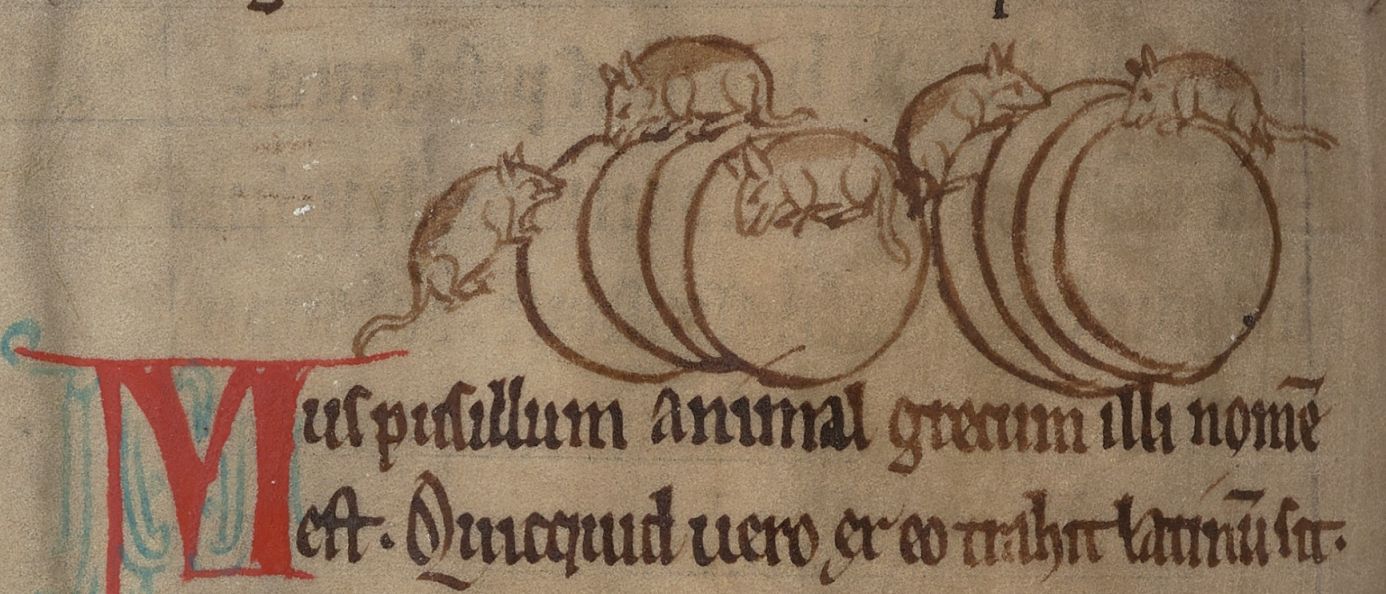 Mus pusillum animal grecum illi nomē
est. Quicquid uero ex eo trahit latinū fit.